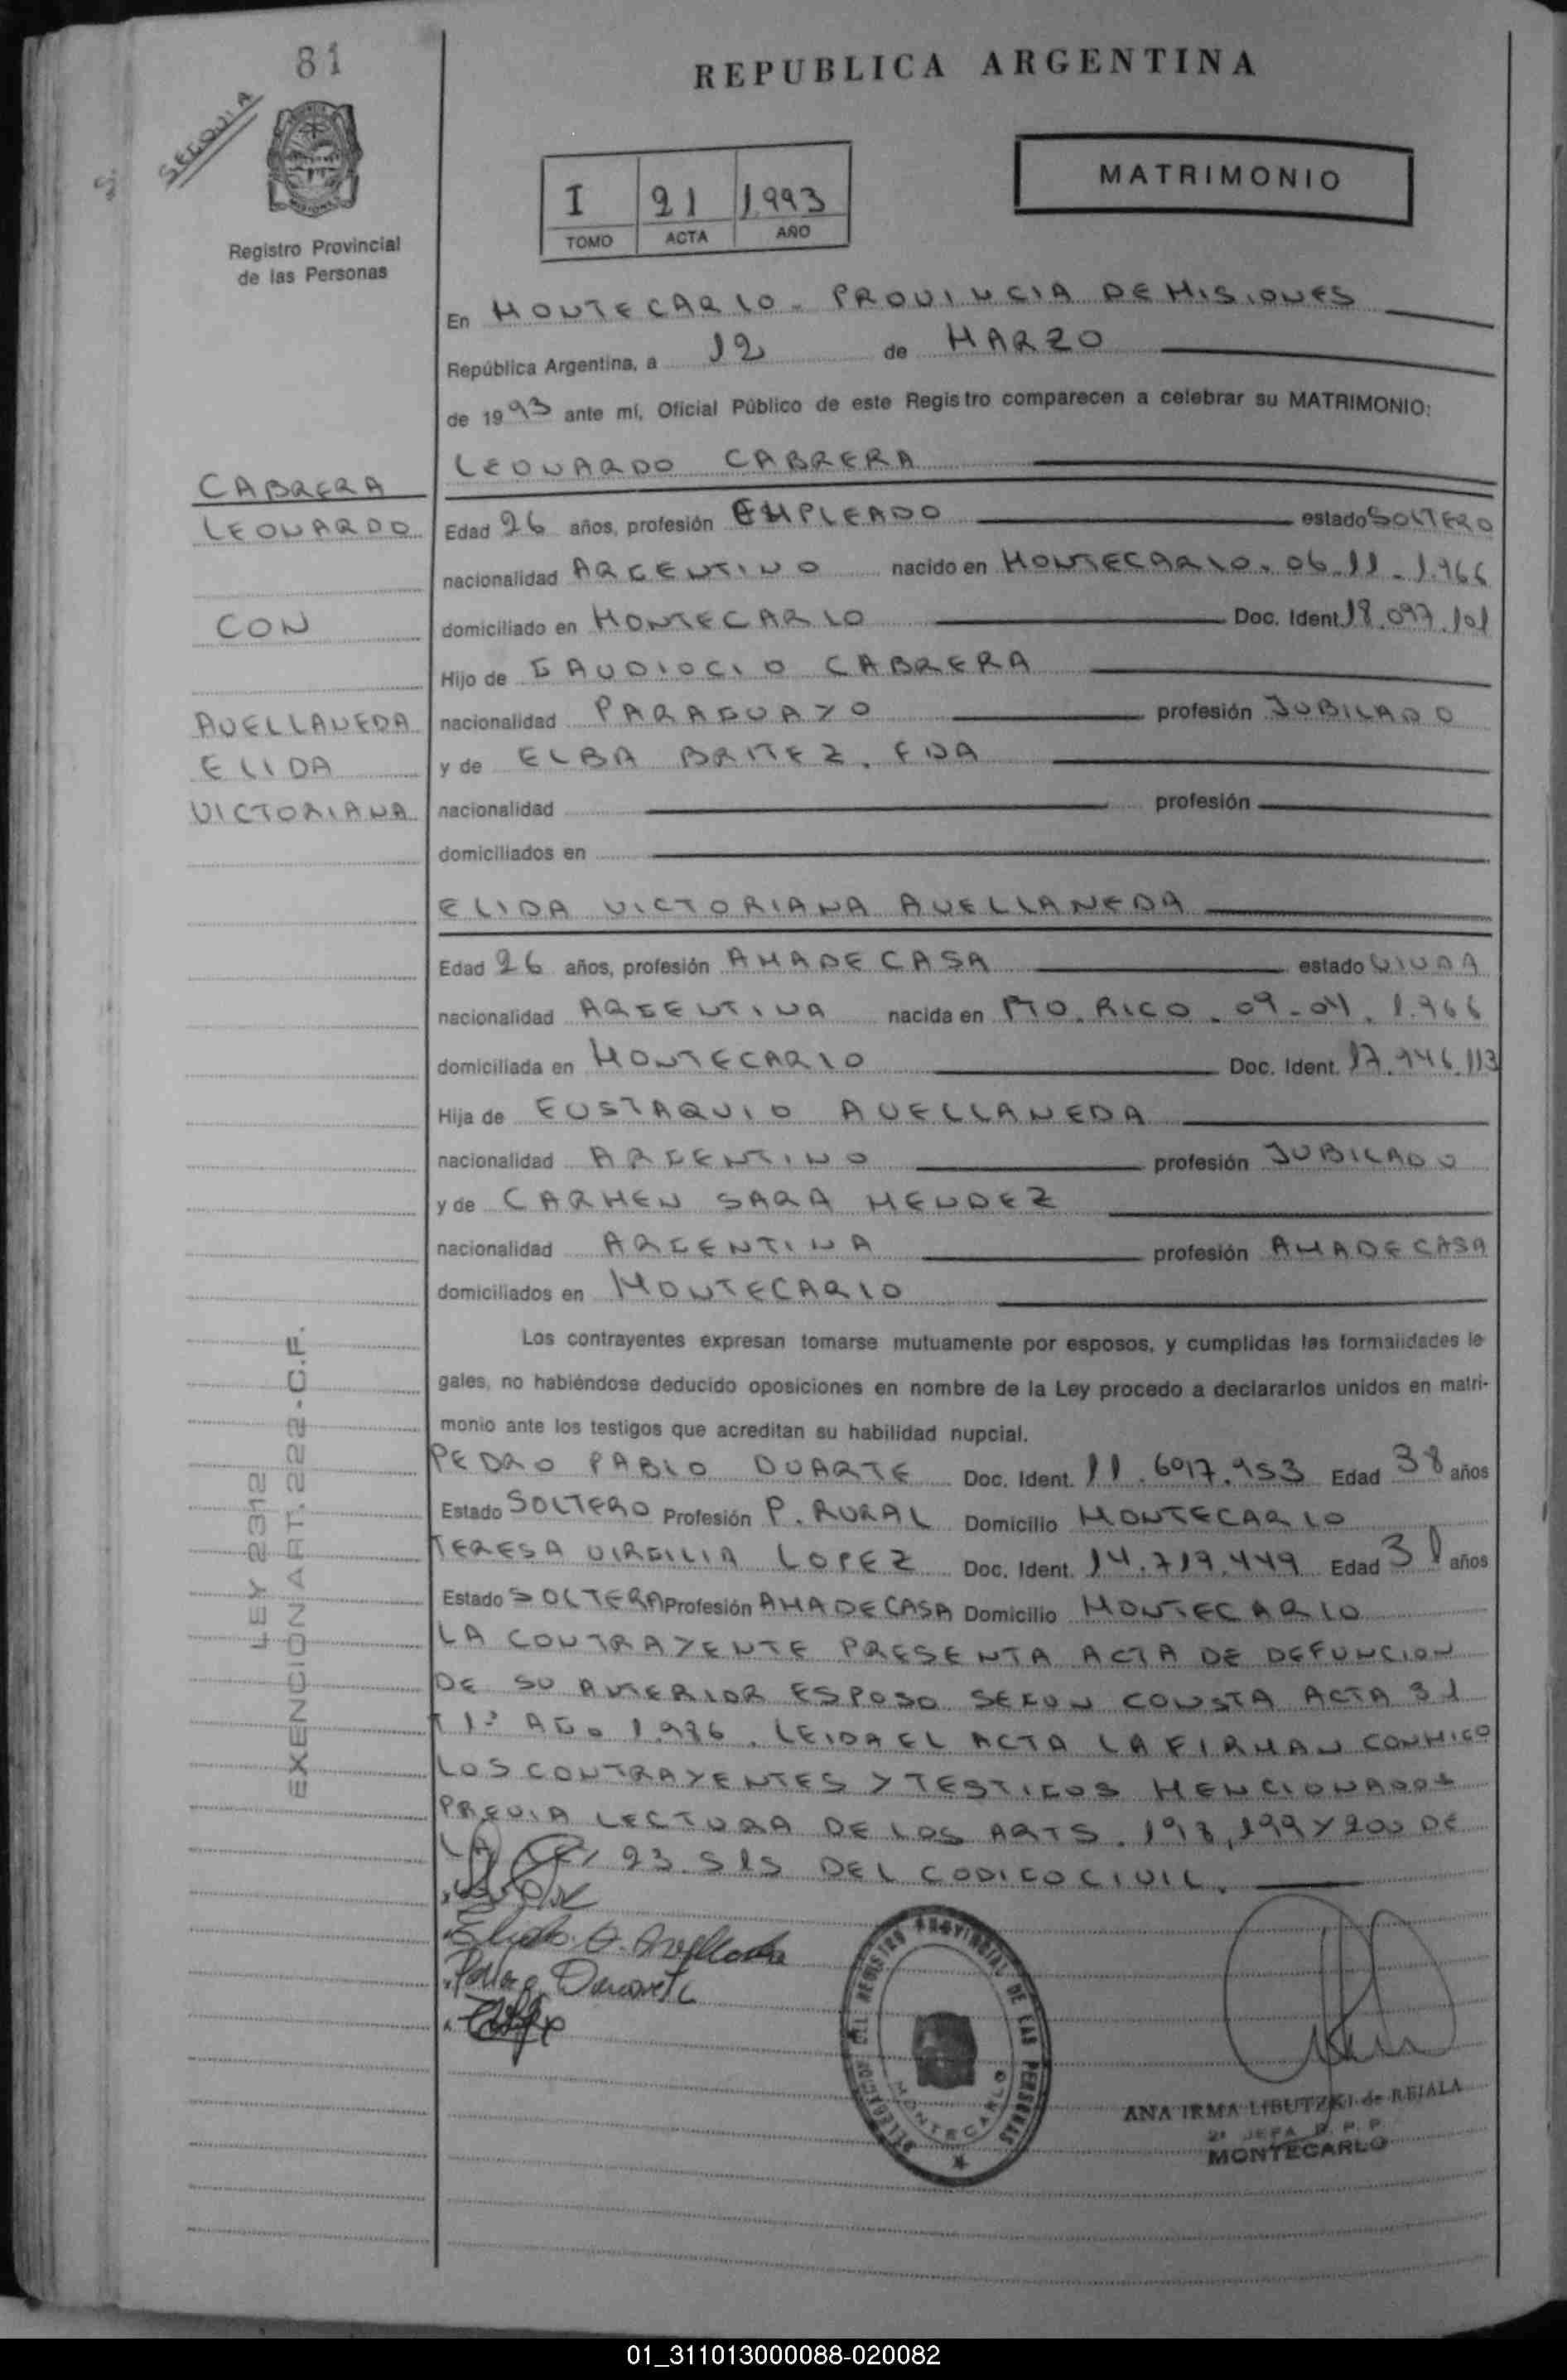 81
SEGQUIA
REPUBLICA ARGENTINA
MATRIMONIO
I 21 1.993
TOMO ACTA AÑO
Registro Provincial
de las Personas
En MONTECARLO - PROVINCIA DE MISIONES
República Argentina, a 12 de MARZO
de 1993 ante mí, Oficial Público de este Registro comparecen a celebrar su MATRIMONIO:
LEONARDO CABRERA
CABRERA
LEONARDO
CON
AVELLANEDA
ELIDA
VICTORIANA
Edad 26 años, profesión EMPLEADO estado SOLTERO
nacionalidad ARGENTINO nacido en MONTECARLO. 06.11.1.966
domiciliado en MONTECARLO Doc. Ident. 18.097.101
Hijo de GAUDIOCIO CABRERA
nacionalidad PARAGUAYO profesión JUBILADO
y de ELBA BRITEZ. FDA
nacionalidad profesión
domiciliados en
ELIDA VICTORIANA AVELLANEDA
Edad 26 años, profesión AMA DE CASA estado VIUDA
nacionalidad ARGENTINA nacida en PTO. RICO. 09-04.1.966
domiciliada en MONTECARLO Doc. Ident. 17.946.113
Hija de EUSTAQUIO AVELLANEDA
nacionalidad ARGENTINO profesión JUBILADO
y de CARMEN SARA MENDEZ
nacionalidad ARGENTINA profesión AMA DE CASA
domiciliados en MONTECARLO
Los contrayentes expresan tomarse mutuamente por esposos, y cumplidas las formalidades le
gales, no habiéndose deducido oposiciones en nombre de la Ley procedo a declararlos unidos en matri-
monio ante los testigos que acreditan su habilidad nupcial.
PEDRO PABLO DUARTE Doc. Ident. 11.697.953 Edad 38 años
Estado SOLTERO Profesión P. RURAL Domicilio MONTECARLO
TERESA VIRGILIA LOPEZ Doc. Ident. 14.719.449 Edad 31 años
Estado SOLTERA Profesión AMA DE CASA Domicilio MONTECARLO
LA CONTRAYENTE PRESENTA ACTA DE DEFUNCION
DE SU ANTERIOR ESPOSO SEGUN CONSTA ACTA 31
T 1º AÑO 1.986. LEIDA EL ACTA LA FIRMAN CONMIGO
LOS CONTRAYENTES Y TESTIGOS MENCIONADOS
PREVIA LECTURA DE LOS ARTS. 198, 199 Y 200 DE
LA LEY 23.515 DEL CODIGO CIVIL.
LEY 2312
EXENCION ART. 222 - C.F.
DELEGACION DEL REGISTRO PROVINCIAL DE LAS PERSONAS
MONTECARLO
ANA IRMA LIBUTZKI de REJALA
2ª JEFA R. P. P.
MONTECARLO
01_311013000088-020082